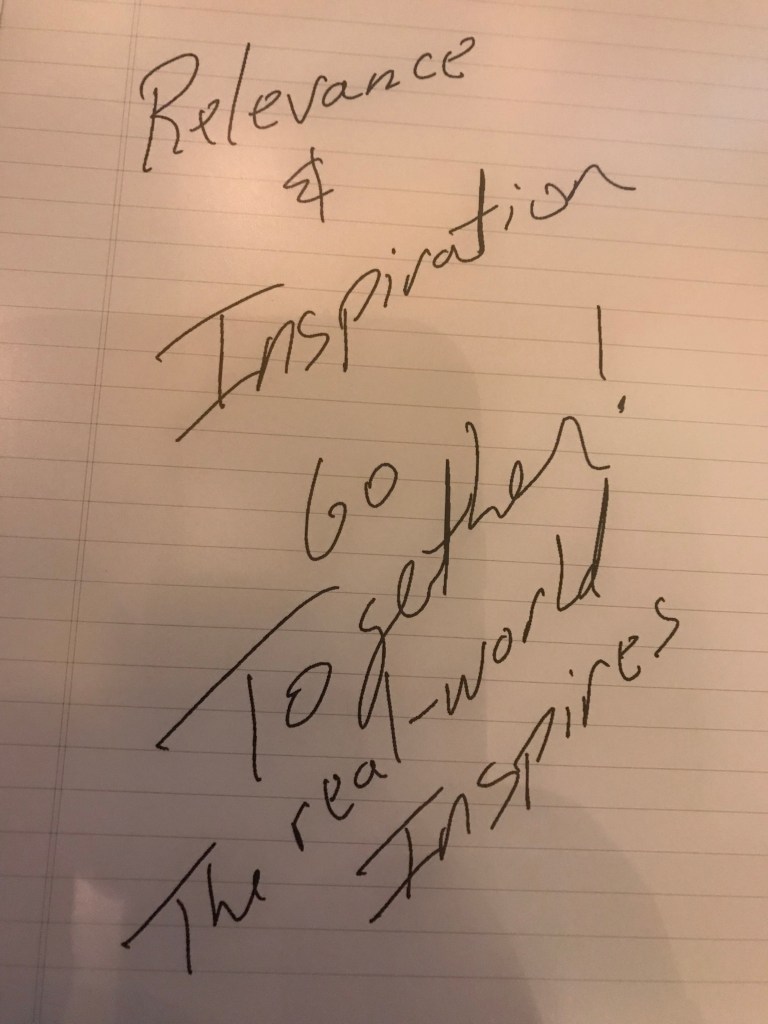 Relevance
&
Inspiration
Go
Together!
The real-world
Inspires